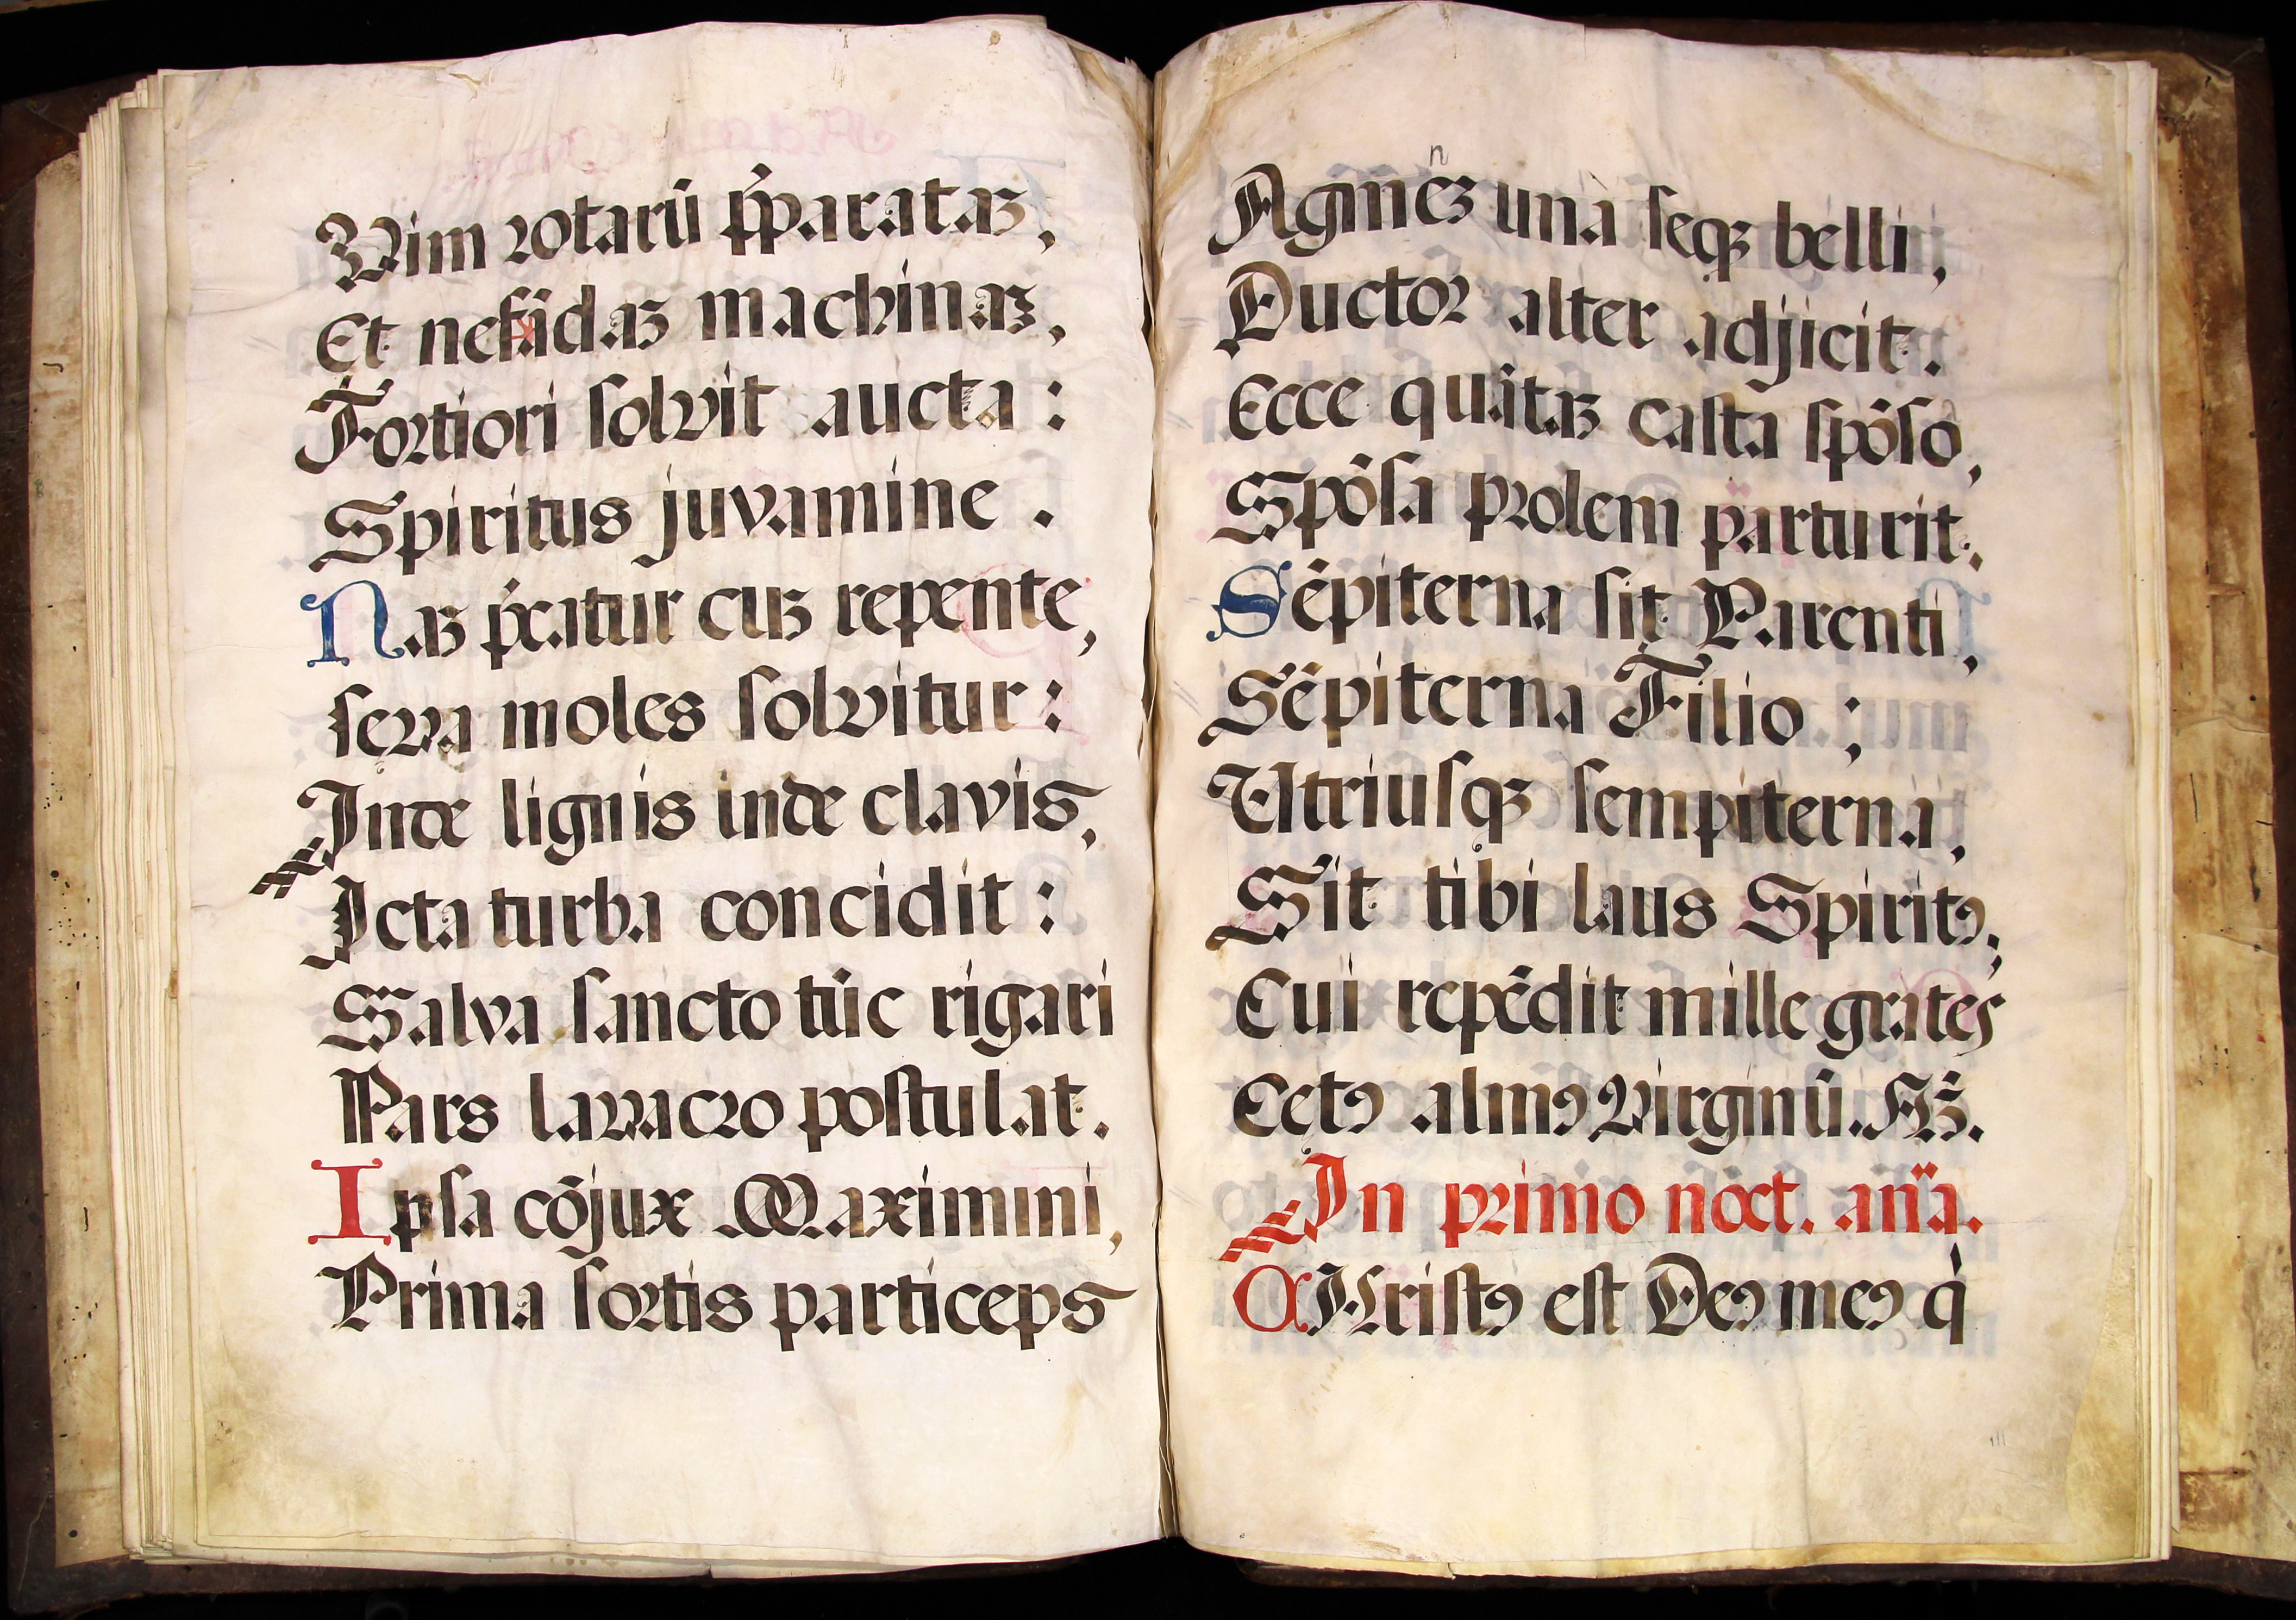 Vim rotarũ p̃paratã,
Et nefãdaꝫ machinaꝫ,
Fortiori solvit aucta:
Spiritus juvamine.
Naꝫ p̃catur cuꝫ repente,
seva moles solvitur:
Inde lignis inde clavis,
Icta turba concidit:
Salva sancto tũc rigari
Pars lavacro postulat.
Ipsa cõjux Maximini,
Prima sortis particeps
Agmeꝫ unà seqꝫ belli,
n
Ductor alter adjicit.
Ecce quãtaꝫ casta spõso,
Spõsa prolem parturit.
Sẽpiterna sit Parenti,
Sẽpiterna Filio;
Utriusqꝫ sempiterna,
Sit tibi laus Spiritꝯ,
Cui repẽdit mille grates
Cetꝯ almꝯ Virginũ. Am̃.
In primo noct. aña.
CHristꝯ est Deꝯ meꝯ q̇